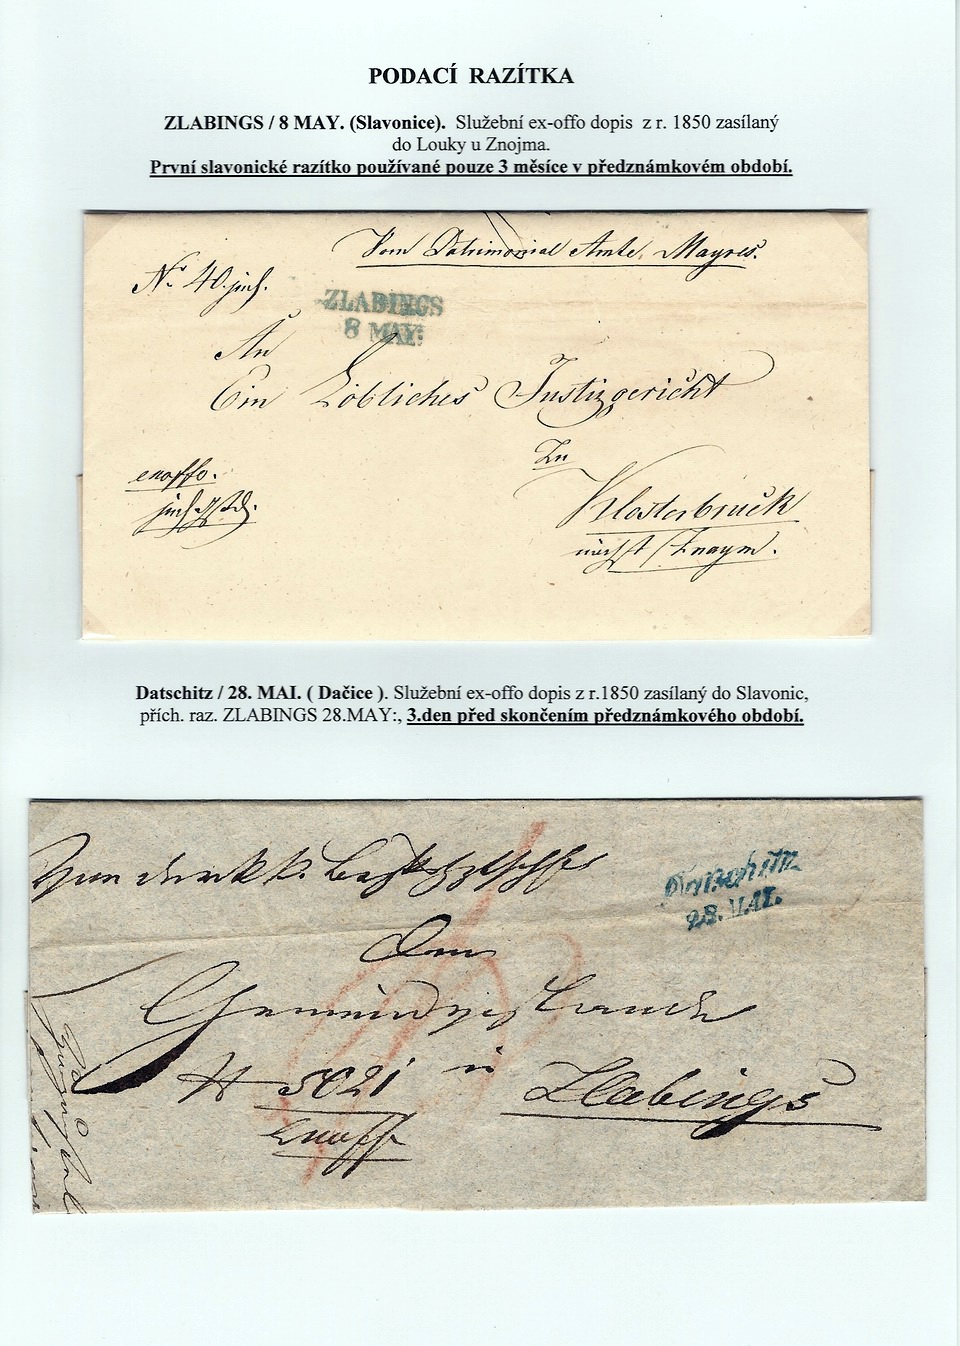 PODACÍ RAZÍTKA
ZLABINGS / 8 MAY. (Slavonice). Služební ex-offo dopis z r. 1850 zasílaný
do Louky u Znojma.
První slavonické razítko používané pouze 3 měsíce v předznámkovém období.
Vom Patrimonial Amte, Mayres.
No. 40.
ZLABINGS
8 MAY:
An
Ein Löbliches Justizgericht
zu
exoffo.
Klosterbruck
nächst Znaym.
Datschitz / 28. MAI. ( Dačice ). Služební ex-offo dopis z r.1850 zasílaný do Slavonic,
přích. raz. ZLABINGS 28.MAY:, 3.den před skončením předznámkového období.
Datschitz
28. MAI.
Dem
5021 in Zlabings
Exoffo